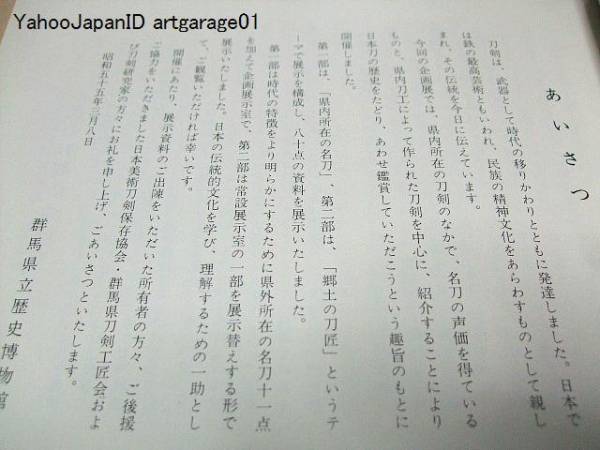 YahooJapanID artgarage01
あいさつ
刀剣は、武器として時代の移りかわりとともに発達しました。日本で
は鉄の最高芸術ともいわれ、民族の精神文化をあらわすものとして親し
まれ、その伝統を今日に伝えています。
今回の企画展では、県内所在の刀剣のなかで、名刀の声価を得ている
ものと、県内刀工によって作られた刀剣を中心に、紹介することにより
日本刀の歴史をたどり、あわせ鑑賞していただこうという趣旨のもとに
開催しました。
第一部は、「県内所在の名刀」、第二部は、「郷土の刀匠」というテ
ーマで展示を構成し、八十点の資料を展示いたしました。
第一部は時代の特徴をより明らかにするために県外所在の名刀十一点
を加えて企画展示室で、第二部は常設展示室の一部を展示替えする形で
展示いたしました。日本の伝統的文化を学び、理解するための一助とし
て、ご観覧いただければ幸いです。
開催にあたり、展示資料のご出陳をいただいた所有者の方々、ご後援
ご協力をいただきました日本美術刀剣保存協会・群馬県刀剣工匠会およ
び刀剣研究家の方々にお礼を申し上げ、ごあいさつといたします。
昭和五十五年三月八日
群馬県立歴史博物館